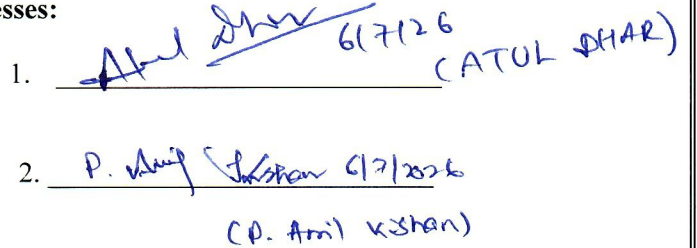 esses:
1. Atul Dhar 6/7/26
(ATUL DHAR)
2. P. Anil Kishan 6/7/2026
(P. Anil Kishan)